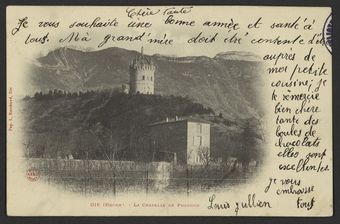 Chère tante
Je vous souhaite une bonne année et santé à
tous. Ma grand'mère doit être contente d'être
auprès de
ma petite
cousine; je
te remercie
bien chère
tante des
boules de
chocolats
elles sont
excellentes
je vous
embrasse
tous
Louis Jullian
DIE (DROME) — LA CHAPELLE DE PURGNON